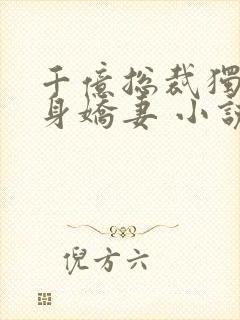 千億總裁獨
身嬌妻 小說
倪方六